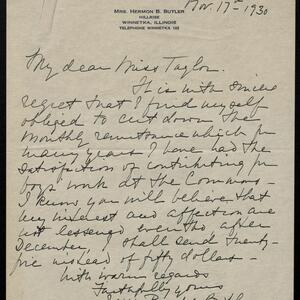 Mrs. Hermon B. Butler
Hillrise
Winnetka, Illinois
Telephone Winnetka 162
Nov. 17th 1930
My dear Miss Taylor.
It is with sincere
regret that I find myself
obliged to cut down the
monthly remittance which for
many years I have had the
satisfaction of contributing for
boys work at the Commons -
I know you will believe that
my interest and affection are
not lessened even tho after
December, I shall send twenty-
five instead of fifty dollars -
With warm regards
Faithfully yours